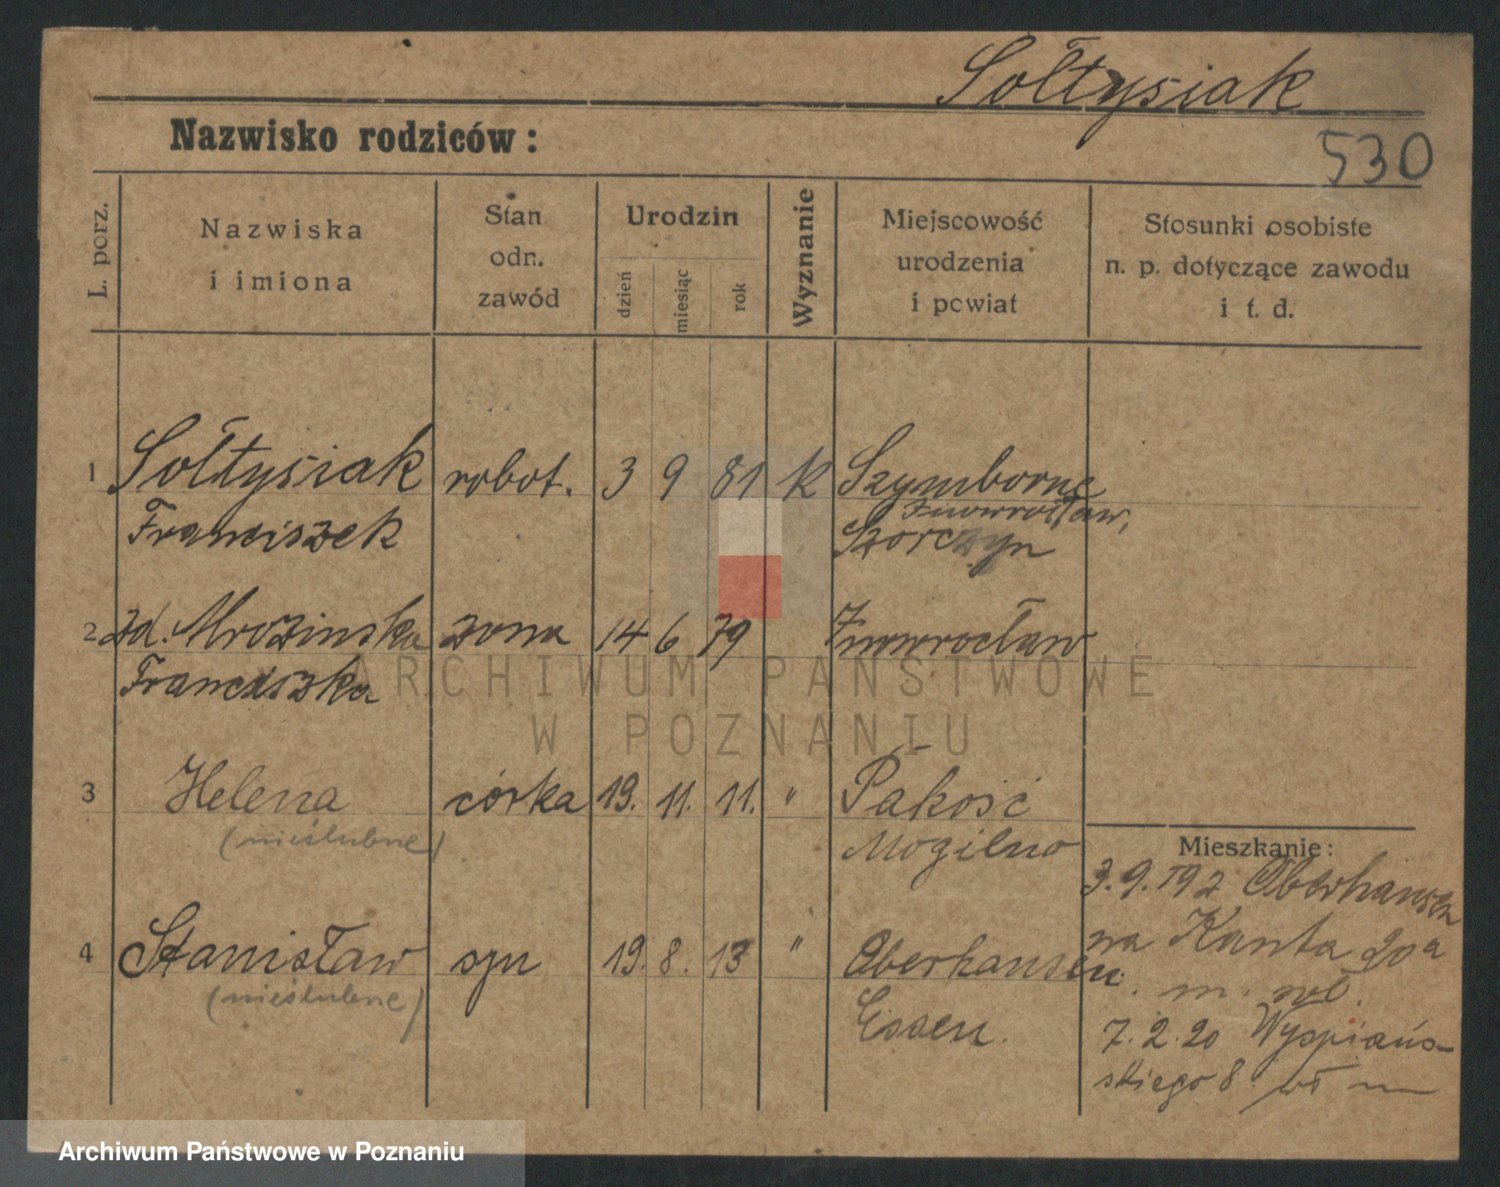 Sołtysiak
Nazwisko rodziców:
530
L. porz.
Nazwiska
i imiona
Stan
odn.
zawód
Urodzin
dzień
miesiąc
rok
Wyznanie
Miejscowość
urodzenia
i powiat
Stosunki osobiste
n. p. dotyczące zawodu
i t. d.
1 Sołtysiak robot. 3 9 81 k Szymborne
Inowrocław,
Franciszek
2 zd. Mrozinska zona 14 6 79 Inowrocław
Franciszka
3 Helena córka 19. 11. 11. " Pakość
(nieślubne) Mogilno
Mieszkanie:
3.9.192 Oberhausen
na Kanta 20a
4 Stanisław syn 19. 8. 13 " Oberhausen
(nieślubne) Essen.
7.2.20 Wyspiańs-
skiego 8
ARCHIWUM PAŃSTWOWE
W POZNANIU
Archiwum Państwowe w Poznaniu